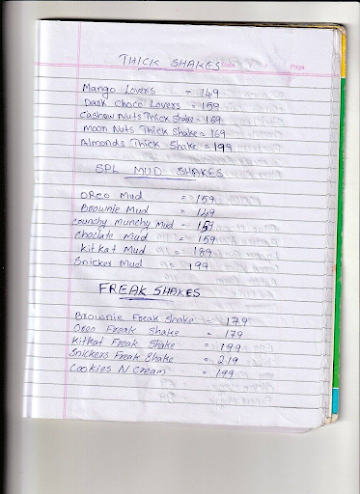 THICK SHAKES
Page
Mango Lovers = 149
Dark Choco Lovers = 159
Cashew Nuts Thick Shake = 169
Moon Nuts Thick Shake = 169
Almonds Thick Shake = 199
SPL MUD SHAKES
Oreo Mud = 159
Brownie Mud = 149
Crunchy Munchy Mud = 159
Choclate Mud = 159
Kitkat Mud = 189
Snicker Mud = 199
FREAK SHAKES
Brownie Freak Shake = 179
Oreo Freak Shake = 179
Kitkat Freak Shake = 199
Snickers Freak Shake = 219
Cookies N Cream = 199